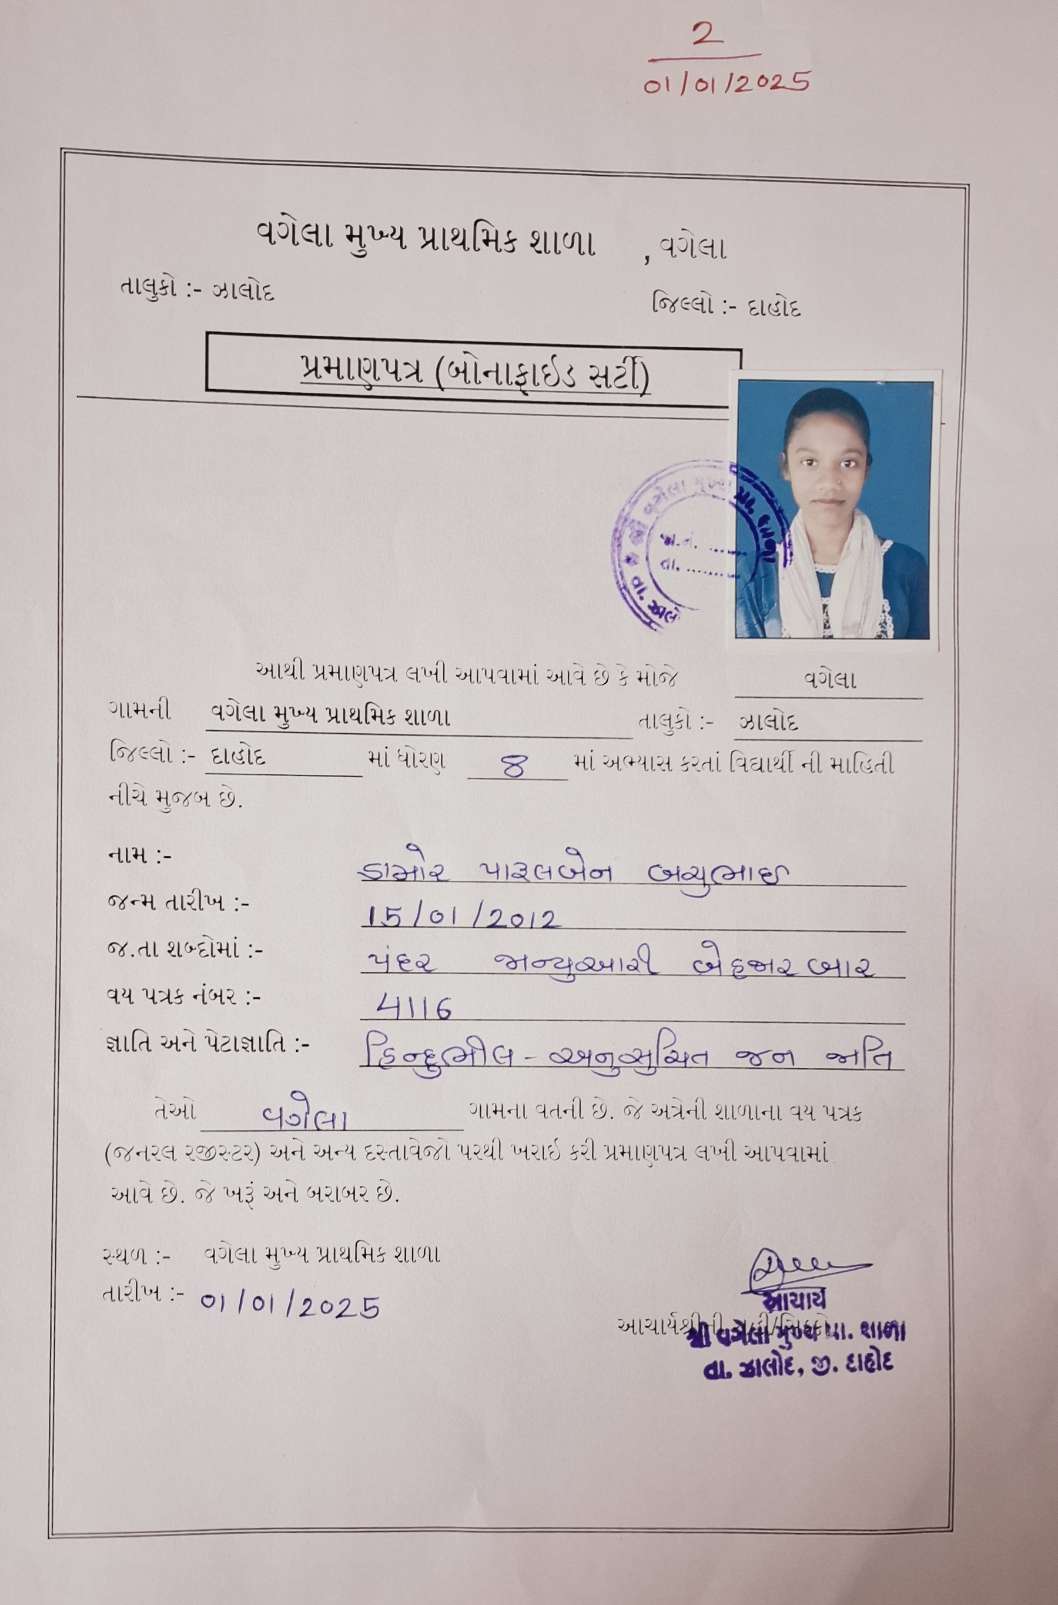 2
01/01/2025
વગેલા મુખ્ય પ્રાથમિક શાળા , વગેલા
તાલુકો :- ઝાલોદ જિલ્લો :- દાહોદ
પ્રમાણપત્ર (બોનાફાઇડ સર્ટી)
શ્રી વગેલા મુખ્ય પ્રા. શાળા
જા.નં. ......
તા. ........
તા. ઝાલો
આથી પ્રમાણપત્ર લખી આપવામાં આવે છે કે મોજે વગેલા
ગામની વગેલા મુખ્ય પ્રાથમિક શાળા તાલુકો :- ઝાલોદ
જિલ્લો :- દાહોદ માં ધોરણ 8 માં અભ્યાસ કરતાં વિદ્યાર્થી ની માહિતી
નીચે મુજબ છે.
નામ :- ડામોર પારૂલબેન બચુભાઇ
જન્મ તારીખ :- 15/01/2012
જ.તા શબ્દોમાં :- પંદર જાન્યુઆરી બેહજાર બાર
વય પત્રક નંબર :- 4116
જ્ઞાતિ અને પેટાજ્ઞાતિ :- હિન્દુભીલ - અનુસુચિત જન જાતિ
તેઓ વગેલા ગામના વતની છે. જે અત્રેની શાળાના વય પત્રક
(જનરલ રજીસ્ટર) અને અન્ય દસ્તાવેજો પરથી ખરાઇ કરી પ્રમાણપત્ર લખી આપવામાં
આવે છે. જે ખરૂં અને બરાબર છે.
સ્થળ :- વગેલા મુખ્ય પ્રાથમિક શાળા
તારીખ :- 01/01/2025
આચાર્ય
આચાર્યશ્રીની
શ્રી વગેલા મુખ્ય પ્રા. શાળા
તા. ઝાલોદ, જી. દાહોદ